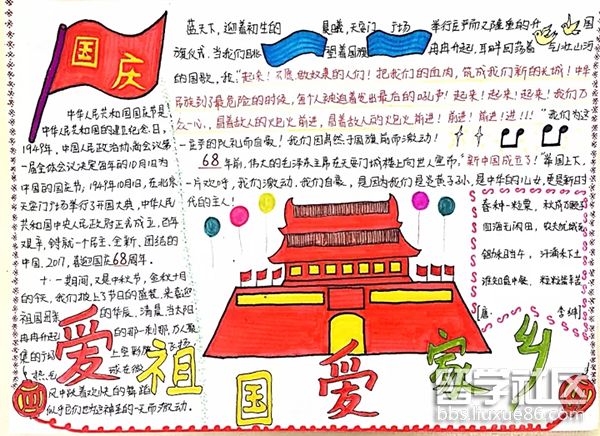 国庆
中华人民共和国国庆节是
中华人民共和国的建立纪念日,
1949年,中国人民政治协商会议第
一届全体会议决定每年的10月1日为
中国的国定节,1949年10月1日,在北京
天安门广场举行了开国大典,中华人民
共和国中央人民政府正式成立,百年
艰辛,铸就一个民主、全新、团结的
中国,2017,喜迎国庆68周年。
十一期间,又是中秋节,金秋十月
的今天,我们披上了节日的盛装,来喜迎
祖国母亲的华辰,清晨,当太阳
冉冉升起的那一刹那,万人聚
集的
上空彩
球在微
风中跃着欢快的舞蹈
蓝天下,迎着初生的晨曦,天安门广场举行庄严而又隆重的升国
旗仪式,当我们目
望着国旗冉冉升起,耳畔回荡着气壮山河
的国歌,我“起来!不愿做奴隶的人们!把我们的血肉,筑成我们新的长城!中华
民族到了最危险的时候,每个人被迫着发出最后的吼声!起来!起来!起来!我们万
众一心,冒着敌人的炮火前进,冒着敌人的炮火前进!前进!前进!进!!!”我们为这
一庄严的队礼而自豪!我们因肃然于国旗前而激动!
68年前,伟大的毛泽东主席在天安门城楼上向世人宣布,“新中国成立了!”举国上下,
一片欢呼,我们激动,我们自豪,是因为我们是炎黄子孙,是中华的儿女,更是新时
代的主人!
春种一粒粟,秋成万颗子
四海无闲田,农夫犹饿死
锄禾日当午,汗滴禾下土
谁知盘中餐,粒粒皆辛苦
[唐]李绅
爱祖国爱家乡
留学社区
bbs.liuxue86.com